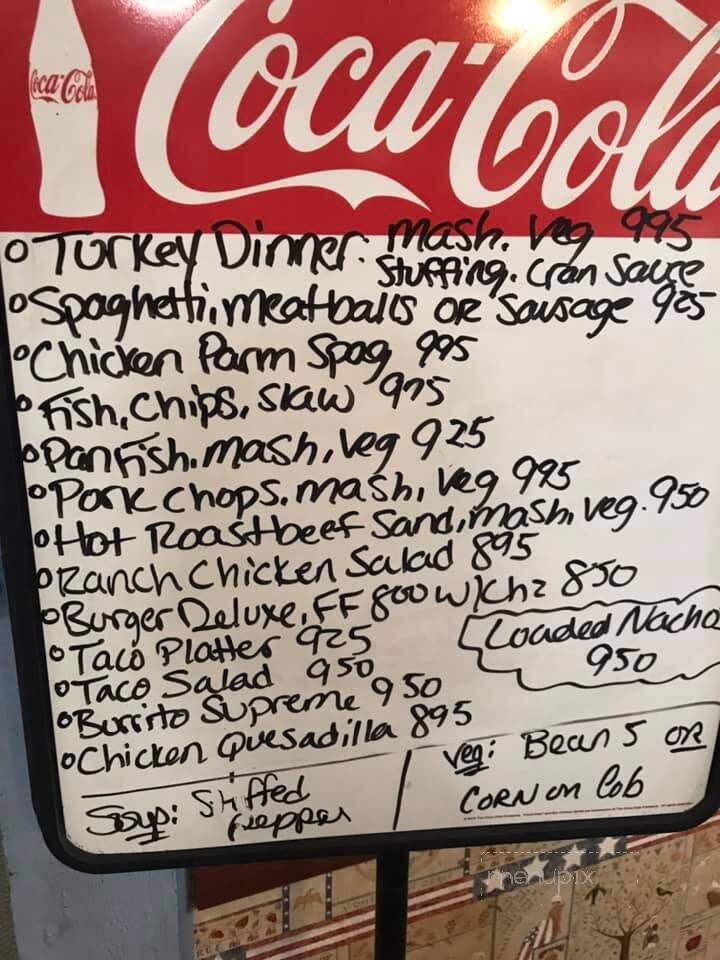 Coca-Cola
Coca-Cola
o Turkey Dinner: mash. veg 995
Stuffing. Cran Sauce
o Spaghetti, meatballs OR Sausage 925
o Chicken Parm Spag 995
o Fish, Chips, Slaw 975
o Pan Fish. mash, veg 925
o Pork chops. mash, veg 995
o Hot Roastbeef Sand, mash, veg. 950
o Ranch Chicken Salad 895
o Burger Deluxe, FF 800 w/chz 850
o Taco Platter 925
Loaded Nacho
950
o Taco Salad 950
o Burrito Supreme 950
o Chicken Quesadilla 895
Soup: Stuffed
Pepper
Veg: Beans OR
CORN on Cob
menupix